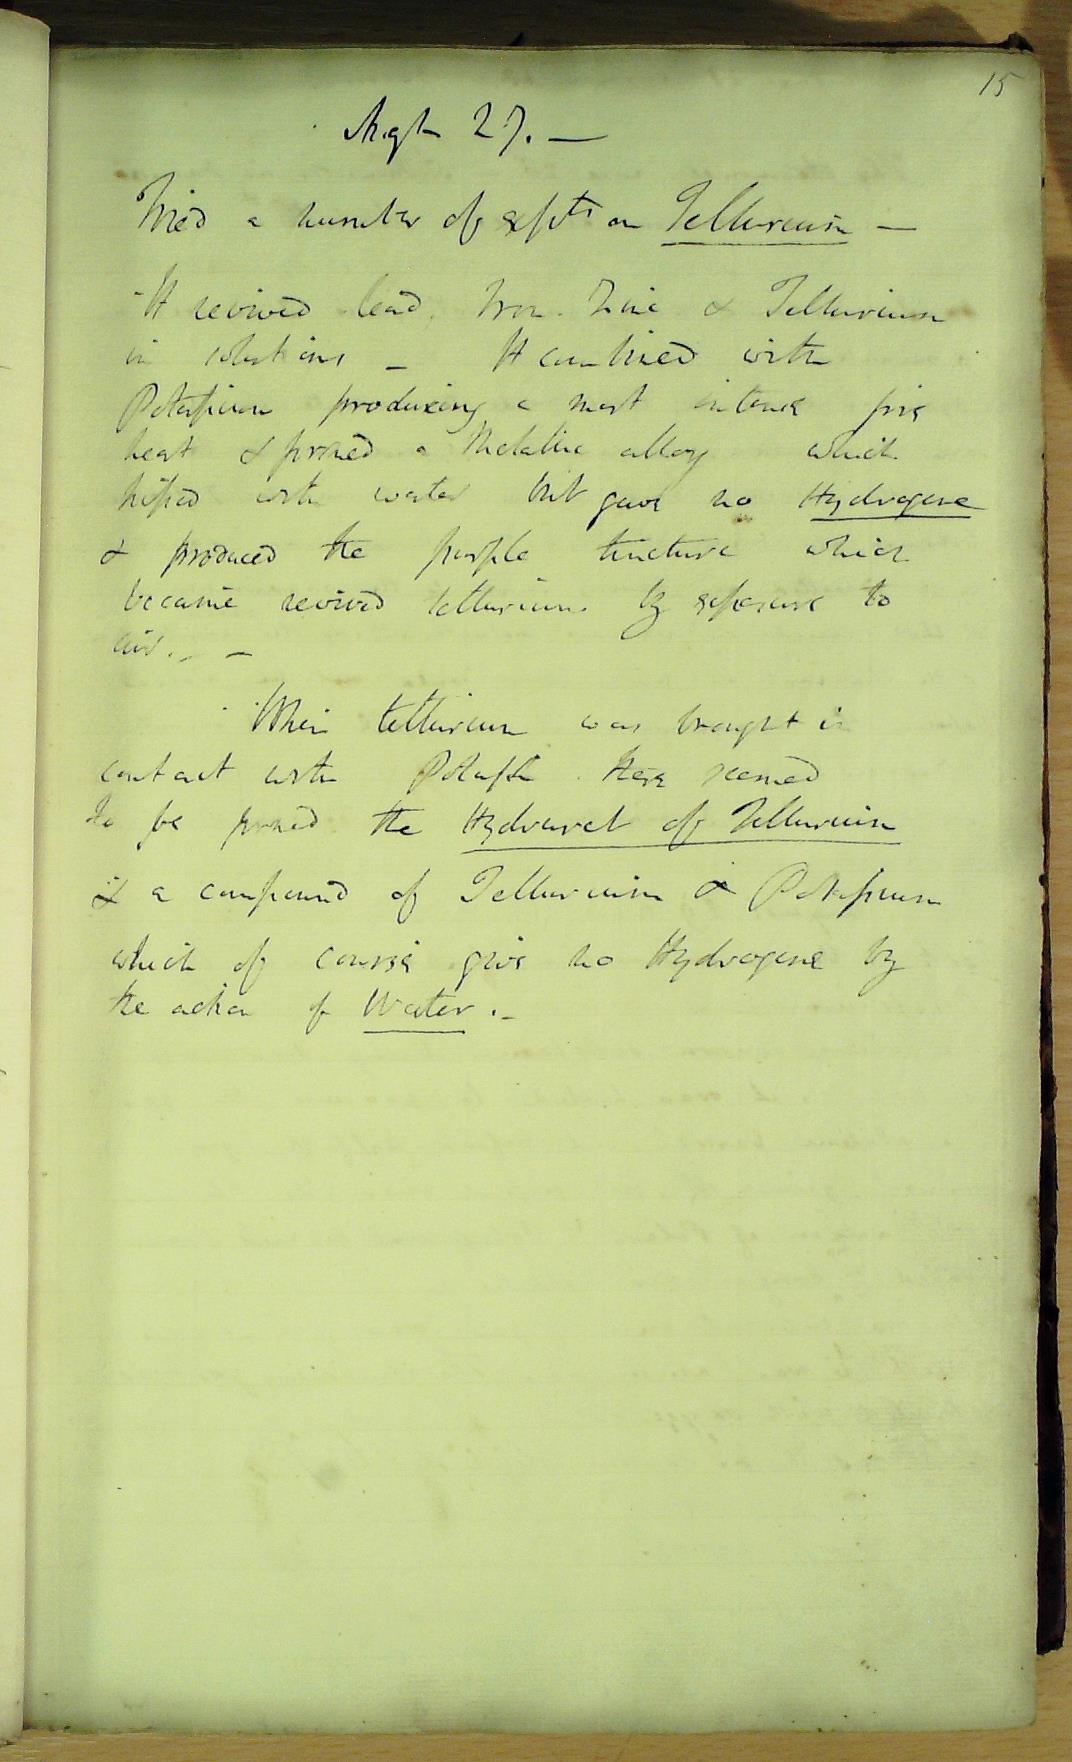 15
Augt 27. —
Tried a number of expts on Tellurium —
It revived lead, Iron. Zinc & Tellurium
in solutions — It combined with
Potassium producing a most intense fire
heat & formed a Metallic alloy which
hissed with water but gave no Hydrogene
& produced the purple tincture which
became revived tellurium by exposure to
air. —
When tellurium was brought in
contact with Potassh there seemed
to be formed the Hydruret of Tellurium
& a compound of Tellurium & Potassium
which of course give no Hydrogene by
the action of Water. —